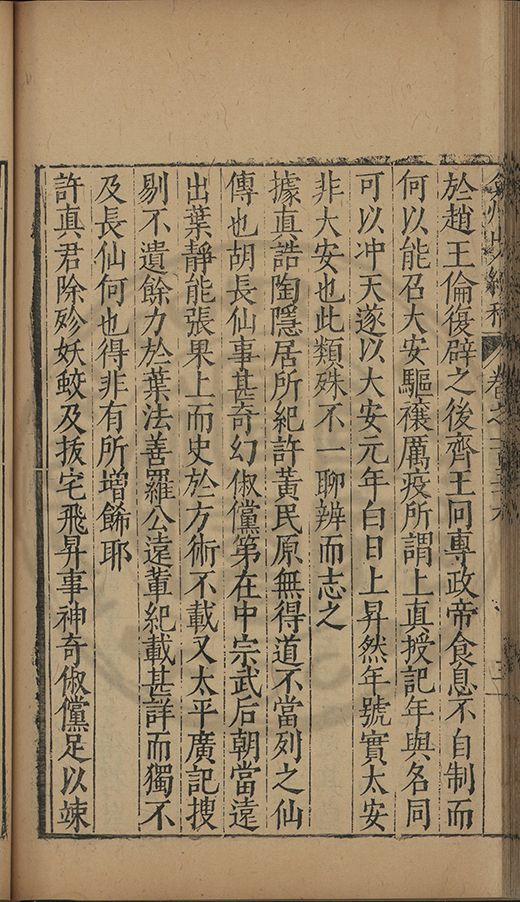 弇州山人續稿 卷之一百五十八
於趙王倫復辟之後齊王冏專政帝食息不自制而
何以能召大安驅禳厲疫所謂上真授記年與名同
可以冲天遂以大安元年白日上昇然年號實太安
非大安也此類殊不一聊辨而志之
據真誥陶隱居所紀許黃民原無得道不當列之仙
傳也胡長仙事甚奇幻俶儻第在中宗武后朝當遠
出葉靜能張果上而史於方術不載又太平廣記搜
剔不遺餘力於葉法善羅公遠輩紀載甚詳而獨不
及長仙何也得非有所增餙耶
許真君除殄妖蛟及拔宅飛昇事神奇俶儻足以竦